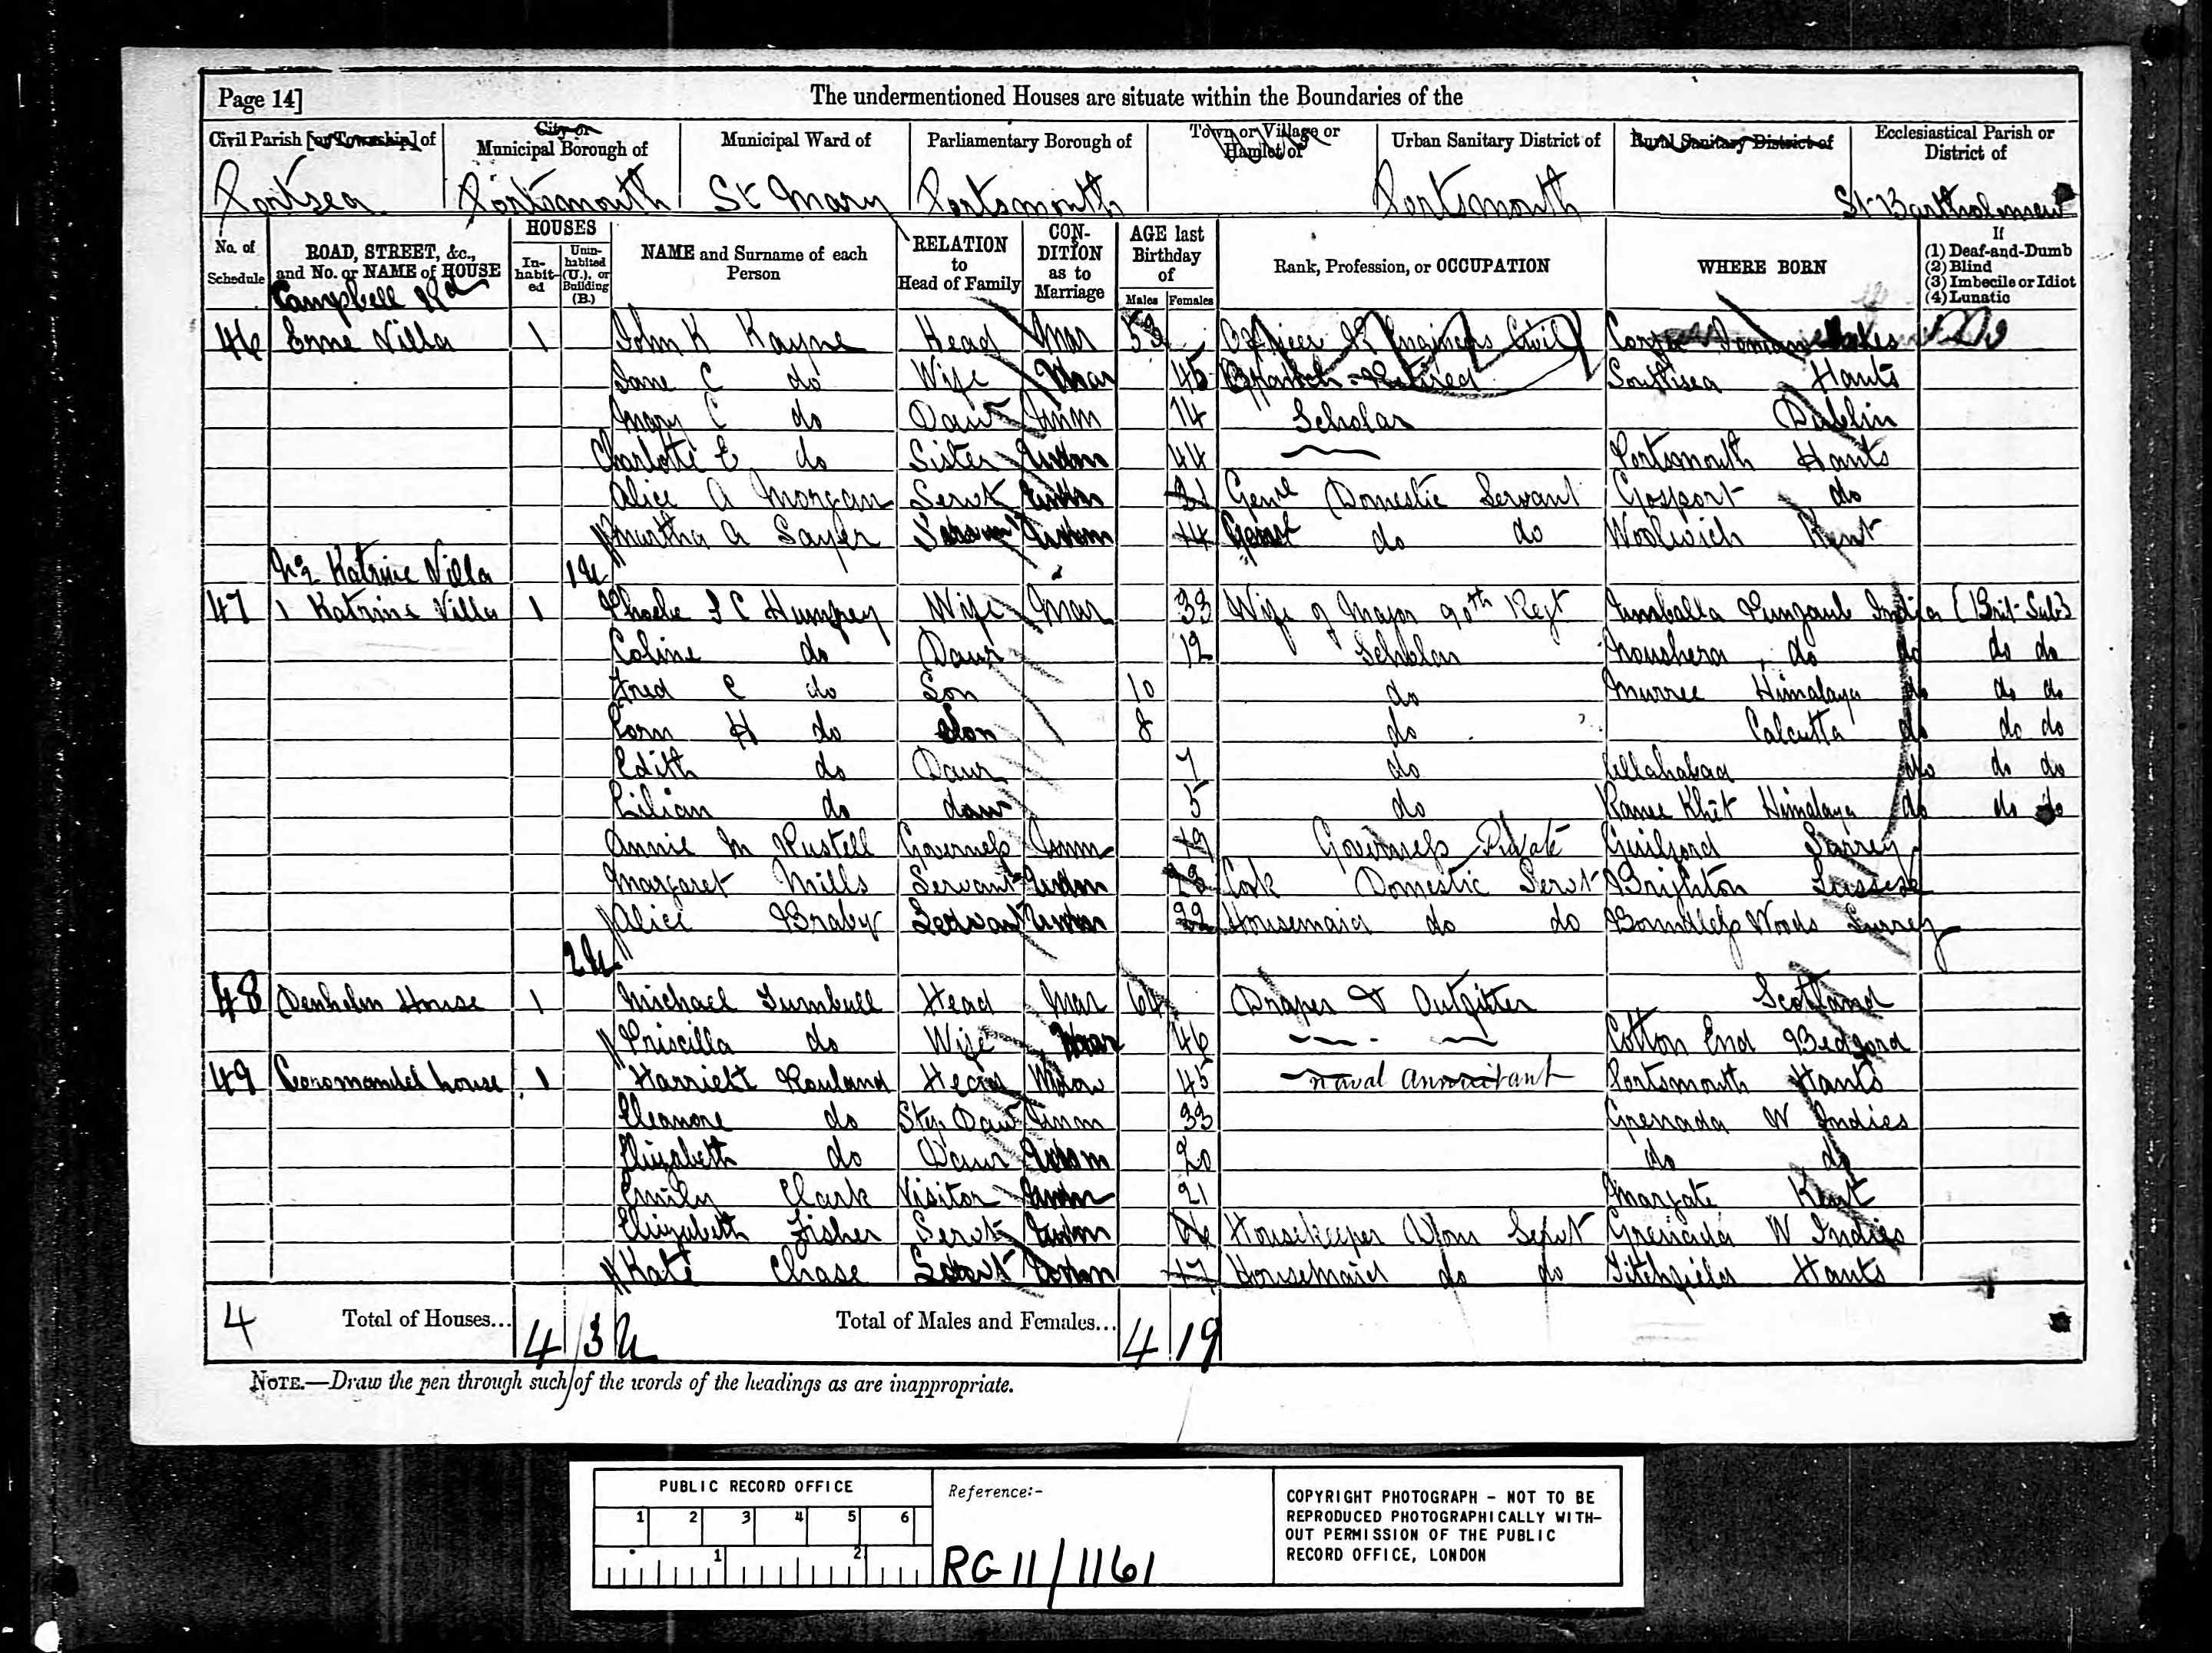 Page 14]
The undermentioned Houses are situate within the Boundaries of the
Civil Parish [or Township] of
City or Municipal Borough of
Municipal Ward of
Parliamentary Borough of
Town or Village or Hamlet of
Urban Sanitary District of
Rural Sanitary District of
Ecclesiastical Parish or District of
Portsea Portsmouth St Mary Portsmouth Portsmouth St Bartholomew
No. of Schedule
ROAD, STREET, &c., and No. or NAME of HOUSE
HOUSES
In-habit-ed
Unin-habited (U.), or Building (B.)
NAME and Surname of each Person
RELATION to Head of Family
CON-DITION as to Marriage
AGE last Birthday of
Males Females
Rank, Profession, or OCCUPATION
WHERE BORN
If
(1) Deaf-and-Dumb
(2) Blind
(3) Imbecile or Idiot
(4) Lunatic
Campbell Rd
46 Erne Villa 1 John K Kayne Head Mar 53 Officer R Engineers Civil
Jane C do Wife Mar 45 Branch Retired Southsea Hants
Mary C do Daur Unm 14 Scholar Dublin
Charlotte E do Sister Unm 44 Portsmouth Hants
Alice A Morgan Servt Unm 21 Genl Domestic Servant Gosport do
Martha A Sayer Servant Unm 14 Genl do do Woolwich Kent
No 2 Katrine Villa 1U
47 1 Katrine Villa 1 Phoebe S C Humfrey Wife Mar 33 Wife of Major 90th Regt Umballa Punjaub India (Brit Sub)
Coline do Daur 12 Scholar Noushera do do do do
Fred C do Son 10 do Murree Himalaya do do do
Corn H do Son 8 do Calcutta do do do
Edith do Daur 7 do Allahabad do do do
Lilian do daur 5 do Ranee Khet Himalaya do do do
Annie M Rustell Governess Unm 19 Governess Private Guilford Surrey
Margaret Mills Servant Unm 23 Cook Domestic Servt Brighton Sussex
Alice Braby Servant Unm 22 Housemaid do do Woods Surrey
2U
48 Denholm House 1 Michael Turnbull Head Mar 64 Draper & Outfitter Scotland
Priscilla do Wife Mar 46 Cotton End Bedford
49 Coromandel house 1 Harriett Rouland Head Widow 45 Naval Annuitant Portsmouth Hants
Eleanore do Step Daur Unm 33 Grenada W Indies
Elizabeth do Daur Unm 20 do do
Emily Clark Visitor Unm 21 Margate Kent
Elizabeth Fisher Servt Unm Housekeeper Dom Servt Grenada W Indies
Kate Chase Servt Unm 17 Housemaid do do Titchfield Hants
4 Total of Houses... 4 3 U Total of Males and Females... 4 19
NOTE.—Draw the pen through such of the words of the headings as are inappropriate.
PUBLIC RECORD OFFICE
1 2 3 4 5 6
1 2
Reference:-
RG 11/1161
COPYRIGHT PHOTOGRAPH - NOT TO BE
REPRODUCED PHOTOGRAPHICALLY WITH-
OUT PERMISSION OF THE PUBLIC
RECORD OFFICE, LONDON